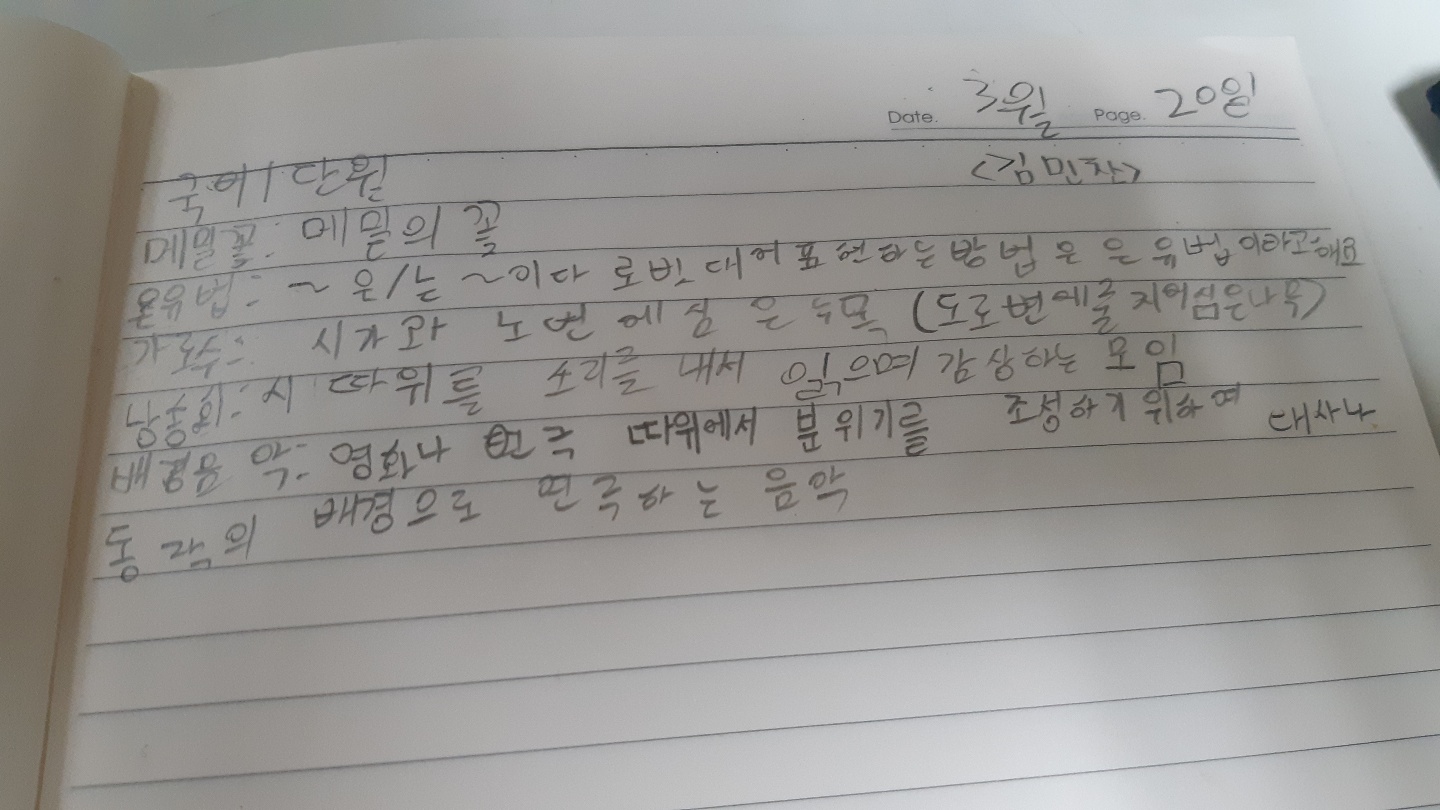 Date. 3월 Page. 20일
국어 1 단원 <김민찬>
메밀꽃: 메밀의 꽃
은유법: ~ 은/는 ~이다 로 빗대어 표현하는 방법은 은유법이라고 해요
가로수: 시가과 노변에 심은 수목 (도로변에 줄지어 심은 나무)
낭송회: 시 따위를 소리를 내서 읽으며 감상하는 모임
배경음악: 영화나 연극 따위에서 분위기를 조성하기 위하여 대사나
동작의 배경으로 연주하는 음악